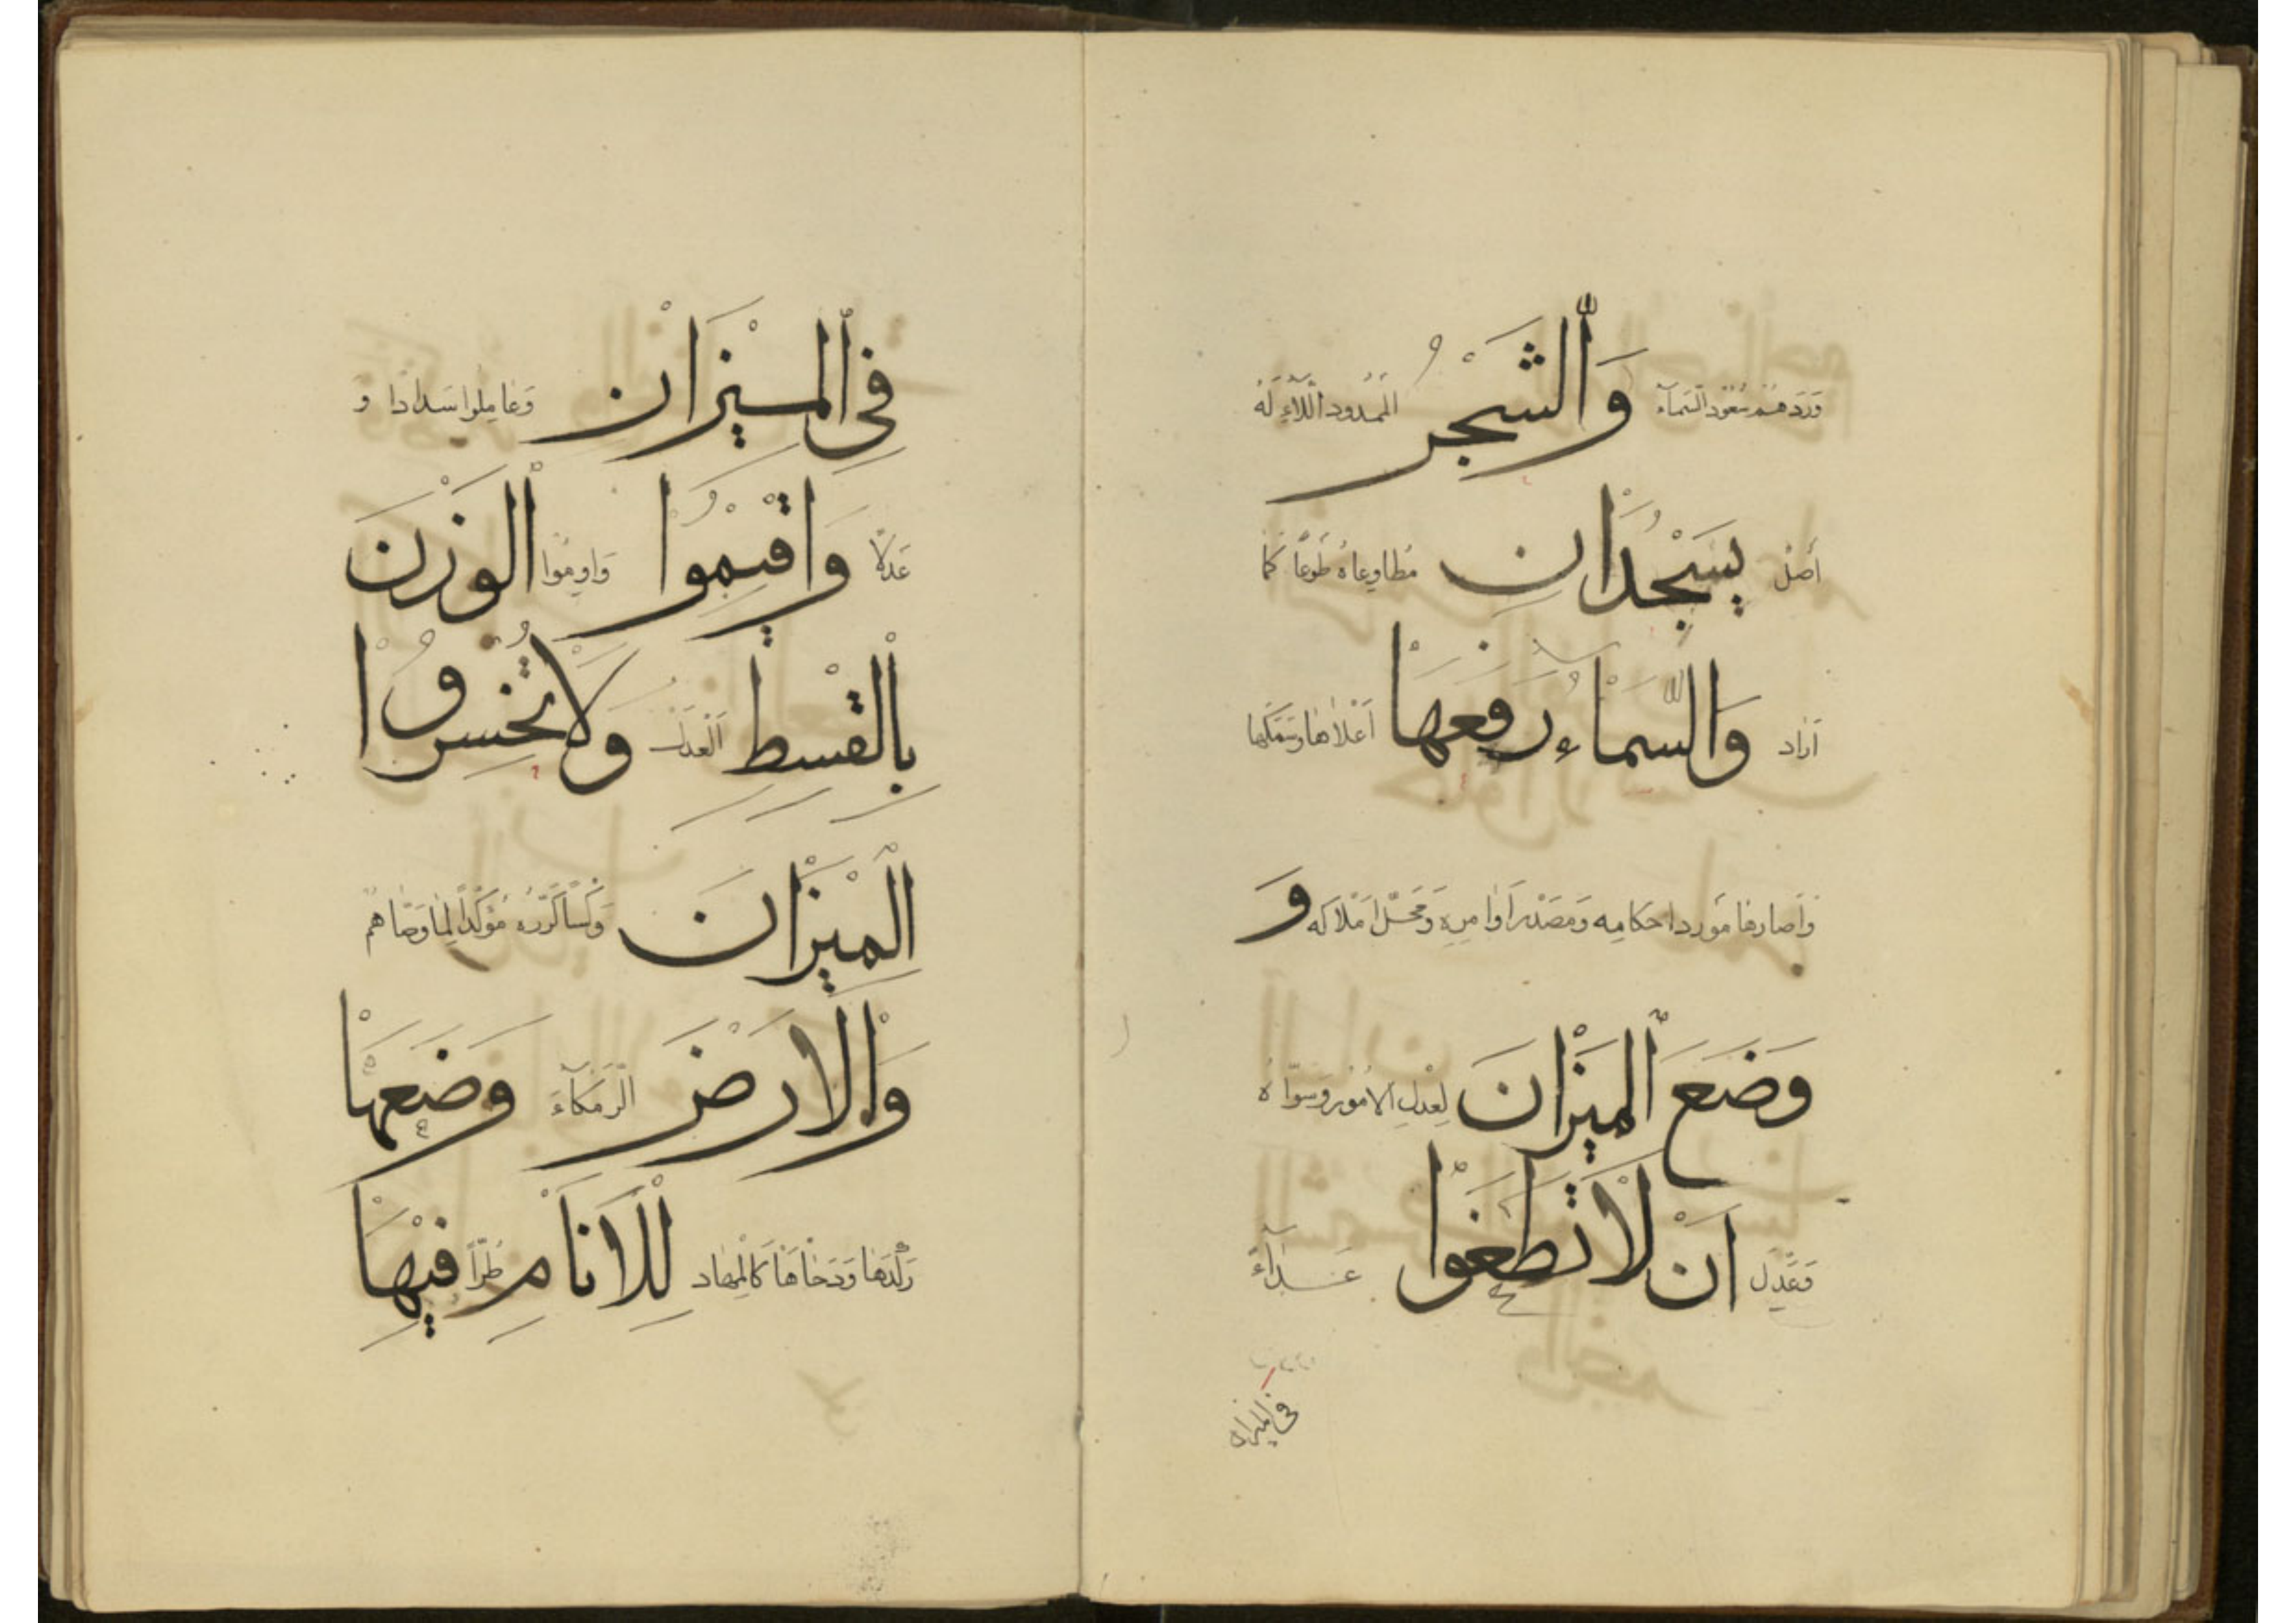 وَٱلشَّجَرُ الْمَمْدُودُ اللَّأْلَاءِ لَهُ
أَصْل يَسْجُدَانِ مُطَاوِعَاهُ طَوْعًا كَمَا
أَرَادَ وَالسَّمَاءَ رَفَعَهَا أَعْلَاهَا وَسَمَكَهَا
وَأَصَارَهَا مَوْرِدَ أَحْكَامِهِ وَمَصْدَرَ أَوَامِرِهِ وَمَحَلَّ أَمْلَاكِهِ وَ
وَضَعَ ٱلْمِيْزَانَ لِعَدْلِ الأُمُورِ وَسَوَّاهُ
وَعَدَّلَ اَنْ لَا تَطْغَوْا عَدَاءً
فى الميزان
فِي ٱلْمِيْزَانِ وَعَامِلُوا سَدَادًا وَ
عَدْلًا وَاَقِيْمُوا وَاوِمُوا ٱلْوَزْنَ
بِالْقِسْطِ الْعَدْلِ وَلَا تُخْسِرُوا
الْمِيْزَانَ وَكُلَّمَا كَرَّرَهُ مُؤَكِّدًا لِمَا وَصَّاهُمْ
وَالْاَرْضَ الرَّمْكَاءَ وَضَعَهَا
وَدَحَاهَا كَالْمِهَادِ لِلْاَنَامِ طُرًّا فِيْهَا